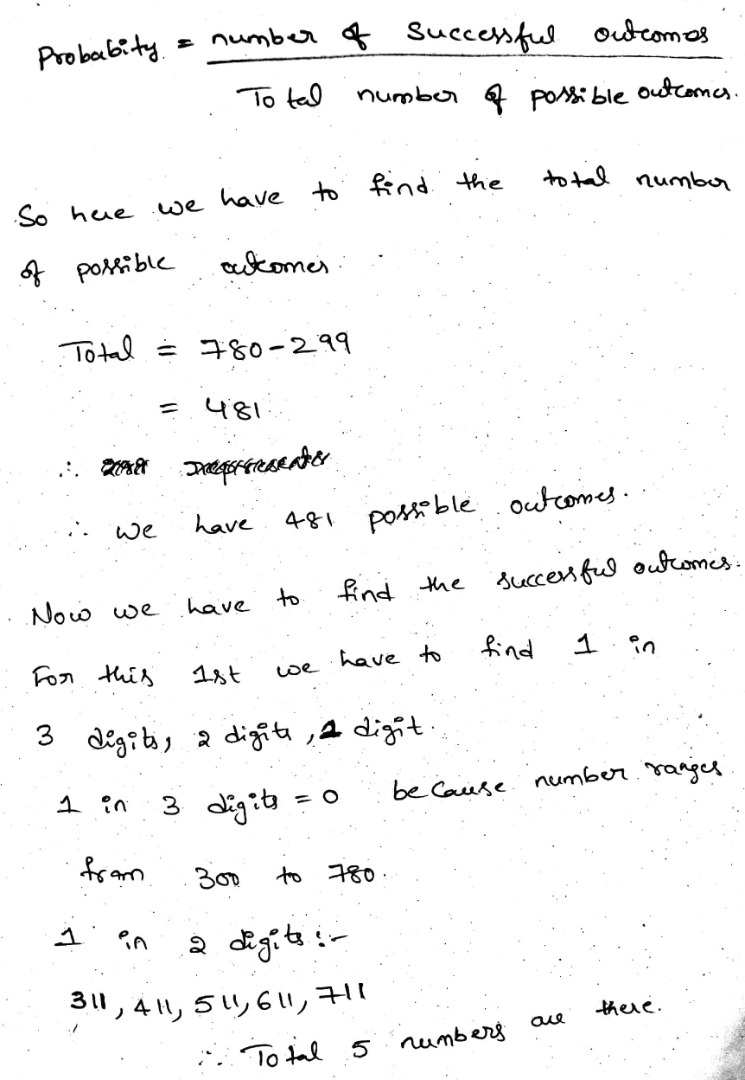 Probabity = number of Successful outcomes
Total number of possible outcomes.
So here we have to find the total number
of possible outcomes
Total = 780-299
= 481
∴
∴ we have 481 possible outcomes.
Now we have to find the successful outcomes.
For this 1st we have to find 1 in
3 digits, 2 digits, 1 digit.
1 in 3 digits = 0 because number ranges
from 300 to 780.
1 in 2 digits :-
311, 411, 511, 611, 711
∴ Total 5 numbers are there.